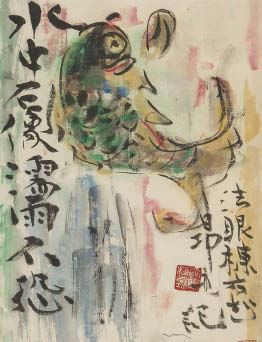 水中石像濡雨不恐
法眼棟方志
昂 記